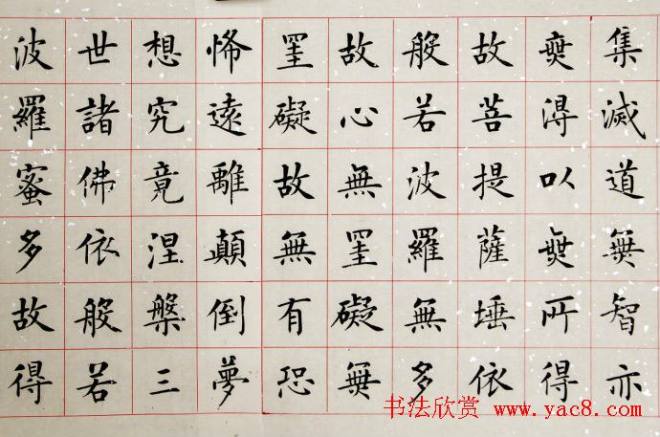 集滅道無智亦
無得以無所得
故菩提薩埵依
般若波羅無多
故心無罣礙無
罣礙故無有恐
悕遠離顛倒夢
想究竟涅槃三
世諸佛依般若
波羅蜜多故得
书法欣赏 www.yac8.com